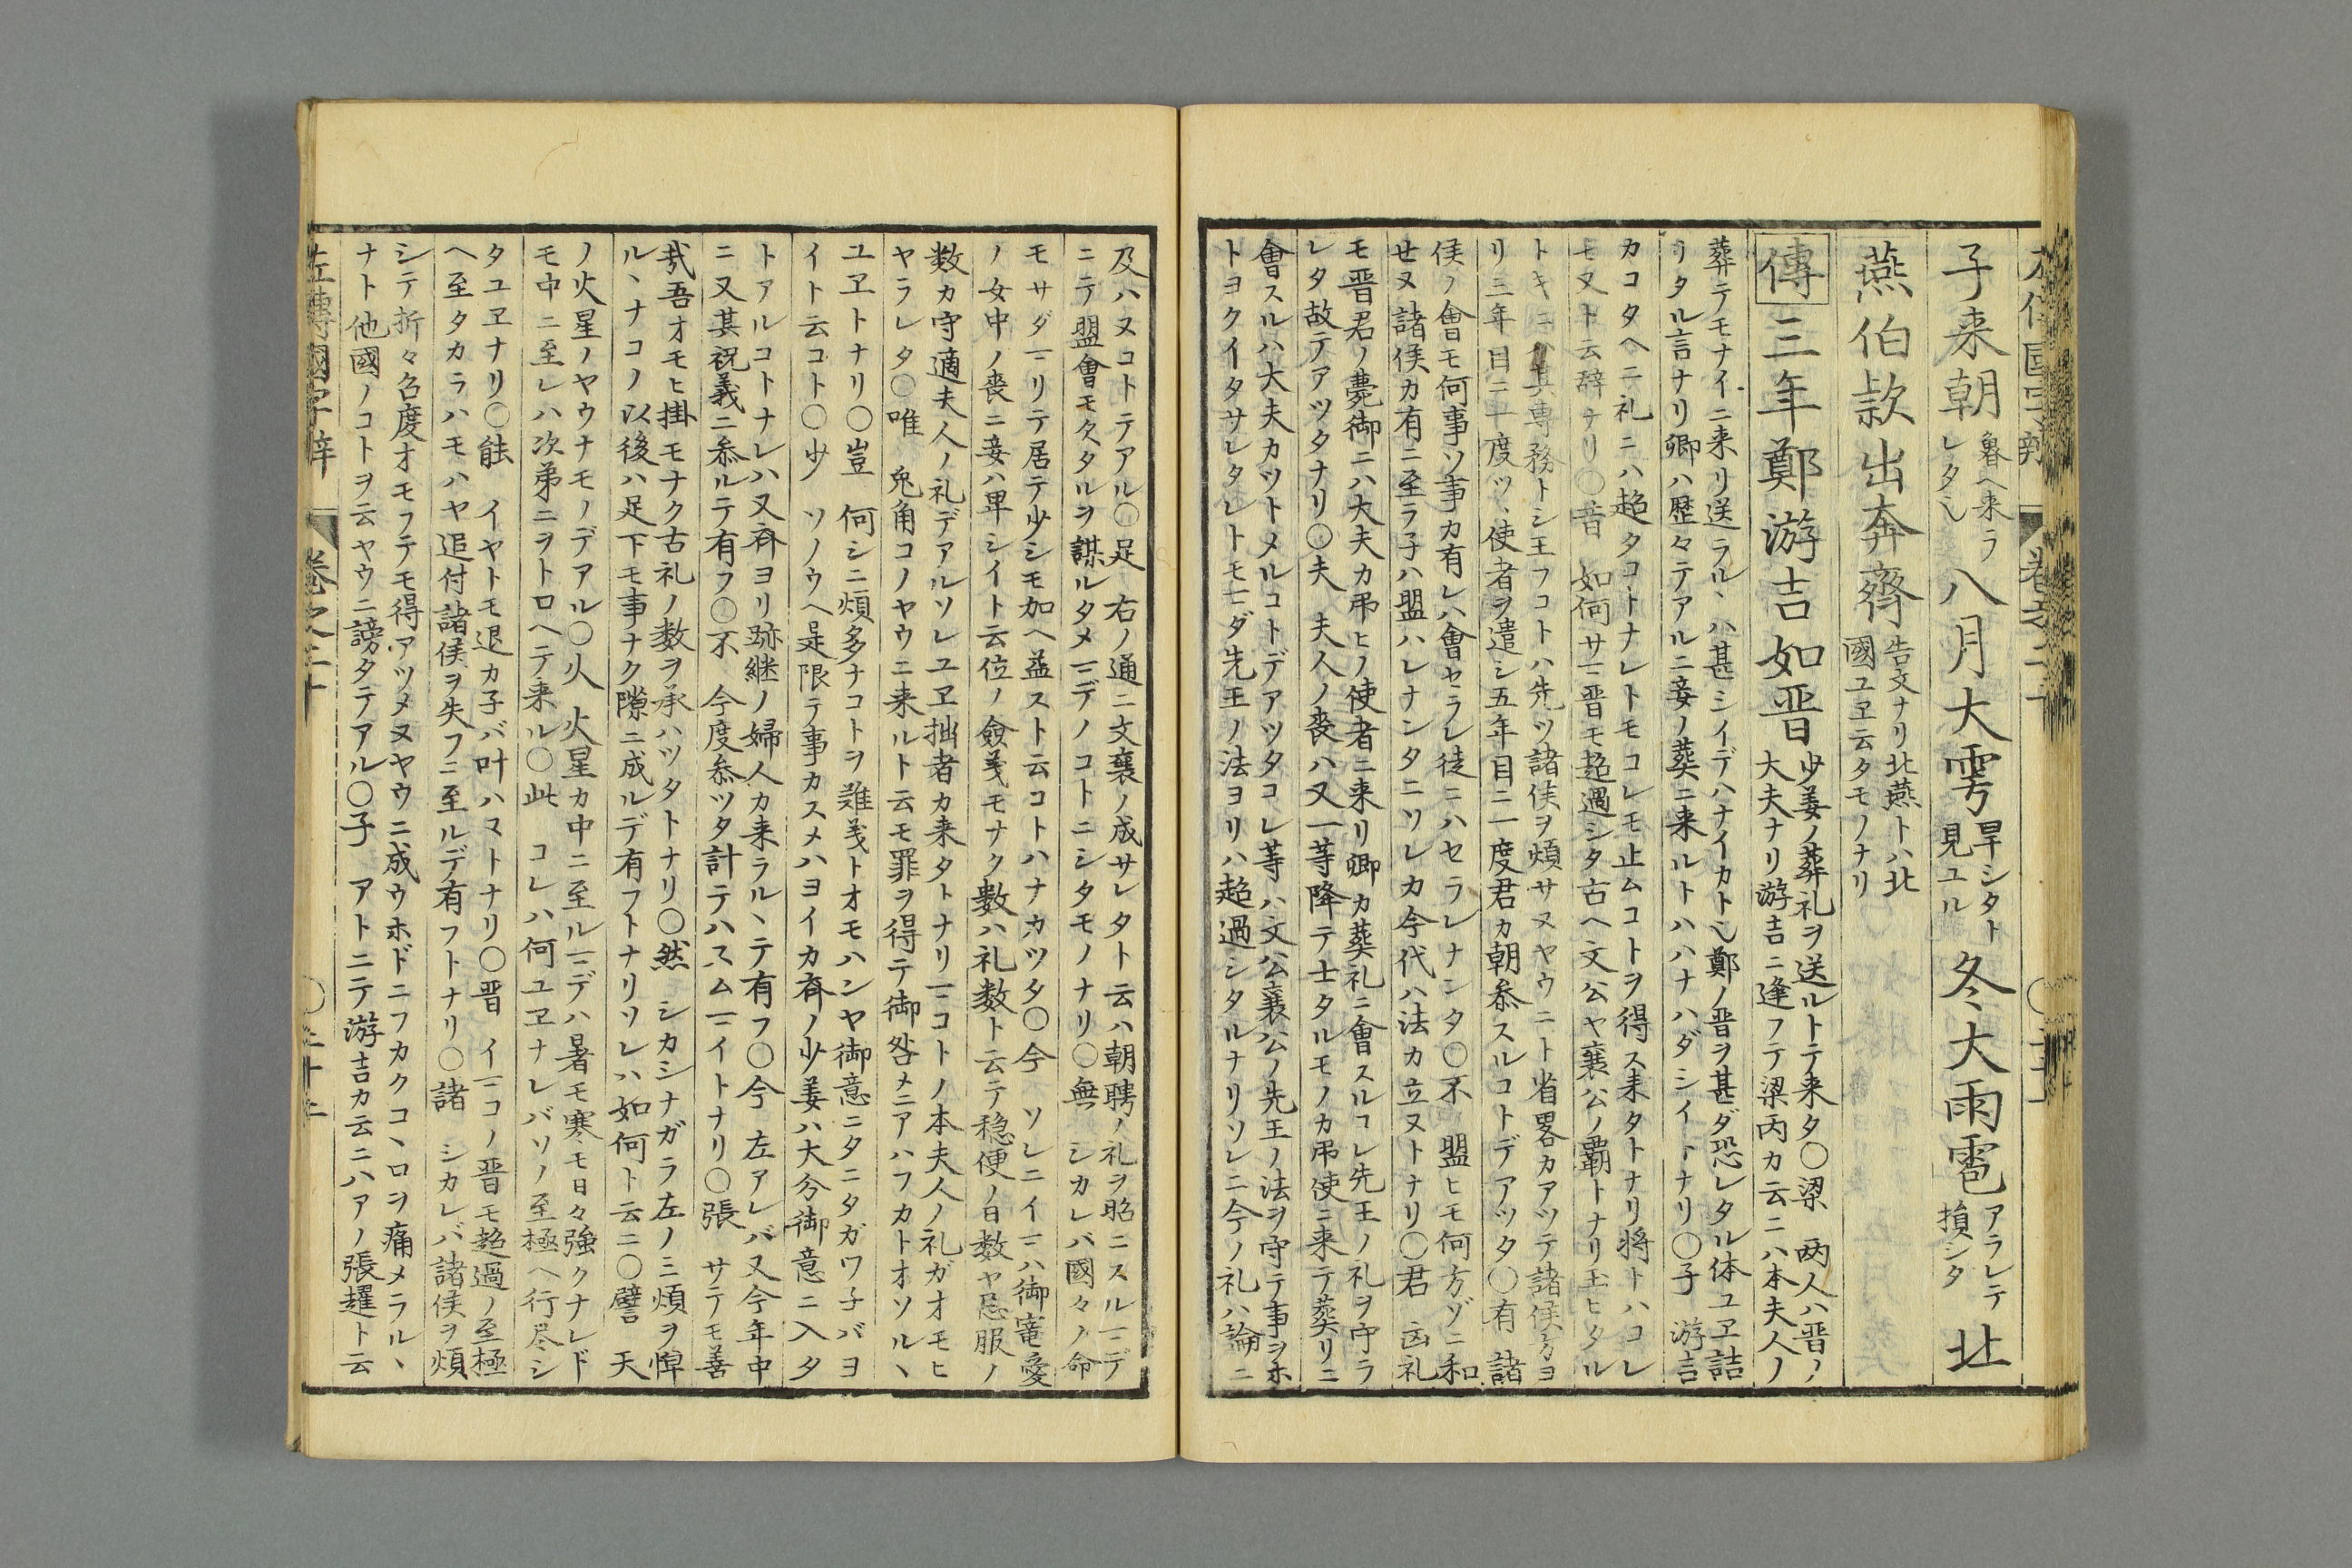 子来朝魯ヘ来ラレタ乄八月大雩旱シタト見ユル冬大雨雹アラレテ損シタ北
燕伯款出奔齊告文ナリ北燕トハ北國ユヱ云タモノナリ
傳三年鄭游吉如晋少姜ノ葬礼ヲ送ルトテ来タ〇梁 两人ハ晋ノ大夫ナリ游吉ニ逢フテ梁丙カ云ニハ本夫人ノ
葬テモナイニ来リ送ラルヽハ甚シイデハナイカト乄鄭ノ晋ヲ甚ダ恐レタル体ユヱ詰
リタル言ナリ卿ハ歴々テアルニ妾ノ葬ニ来ルトハハナハダシイトナリ〇子 游吉
カコタヘニ礼ニハ超タコトナレトモコレモ止ムコトヲ得ス来タトナリ将トハコレ
モ又ト云辞ナリ〇昔 如何サマ晋モ超過シタ古ヘ文公ヤ襄公ノ覇トナリ玉ヒタル
トキニハ其専務トシ王フコトハ先ツ諸侯ヲ煩サヌヤウニト省畧カアツテ諸侯方ヨ
リ三年目ニ一度ツヽ使者ヲ遣シ五年目ニ一度君カ朝参スルコトデアツタ〇有 諸
侯ノ會モ何事ソ事カ有レハ會ヤラレ徒ニハセラレナンタ〇不 盟ヒモ何方ゾニ和
せヌ諸侯カ有ニ至ラ子ハ盟ハレナンタニソレカ今代ハ法カ立ヌトナリ〇君 凶礼
モ晋君ノ薨御ニハ大夫カ弔ヒノ使者ニ来リ卿カ葬礼ニ會スルコレ先王ノ礼ヲ守ラ
レタ故テアツタナリ〇夫 夫人ノ喪ハ又一等降テ士タルモノカ弔使ニ来テ葬リニ
會スルハ大夫カツトメルコトデアツタコレ等ハ文公襄公ノ先王ノ法ヲ守テ事ヲホ
トヨクイタサレタレトモマダ先王ノ法ヨリハ超過シタルナリソレニ今ノ礼ハ論ニ
及ハヌコトテアル〇足 右ノ通ニ文襄ノ成サレタト云ハ朝聘ノ礼ヲ昭ニスルマデ
ニテ盟會モ欠タルヲ謀ルタメマデノコトニシタモノナリ〇無 シカレバ國々ノ命
モサダマリテ居テ少シモ加ヘ益ストト云コトハナカツタ〇今 ソレニイマハ御寵愛
ノ女中ノ喪ニ妾ハ卑シイト云位ノ僉義モナク數ハ礼数ト云テ穏便ノ日数ヤ忌服ノ
数カ守適夫人ノ礼デアルソレユヱ拙者カ来タトナリマコトノ本夫人ノ礼ガオモヒ
ヤラレタ〇唯 兔角コノヤウニ来ルト云モ罪ヲ得テ御咎メニアハフカトオソルヽ
ユヱトナリ〇豈 何シニ煩多ナコトヲ難義トオモハンヤ御意ニタニタガワ子バヨ
イト云コト〇少 ソノウヘ是限テ事カスメハヨイカ齊ノ少姜ハ大分御意ニ入タ
トアルコトナレハ又齊ヨリ跡継ノ婦人カ来ラルヽテ有フ〇今 左アレバ又今年中
ニ又其祝義ニ参ルテ有フ〇不 今度参ツタ計テハスムマイトナリ〇張 サテモ善
哉吾オモヒ掛モナク古礼ノ数ヲ承ハツタトナリ〇然 シカシナガラ左ノミ煩ヲ憚
ルヽナコノ以後ハ足下モ事ナク隙ニ成ルデ有フトナリソレハ如何ト云ニ〇譬 天
ノ火星ノヤウナモノデアル〇火 火星カ中ニ至ルマデハ暑モ寒モ日々強クナレド
モ中ニ至レハ次弟ニヲトロヘテ来ル〇此 コレハ何ユヱナレバソノ至極ヘ行尽シ
タユヱナリ〇能 イヤトモ退カ子バ叶ハマトナリ〇晋 イマコノ晋モ超過ノ至極
ヘ至タカラハモハヤ追付諸侯ヲ失フニ至ルデ有フトナリ〇諸 シカレバ諸侯ヲ煩
シテ折々名度オモフテモ得アツメヌヤウニ成ウホドニフカクコヽロヲ痛メラルヽ
ナト他國ノコトヲ云ヤウニ謗タテアル〇子 アトニテ游吉カ云ニハアノ張趯ト云
左傳國字辯 巻之二十